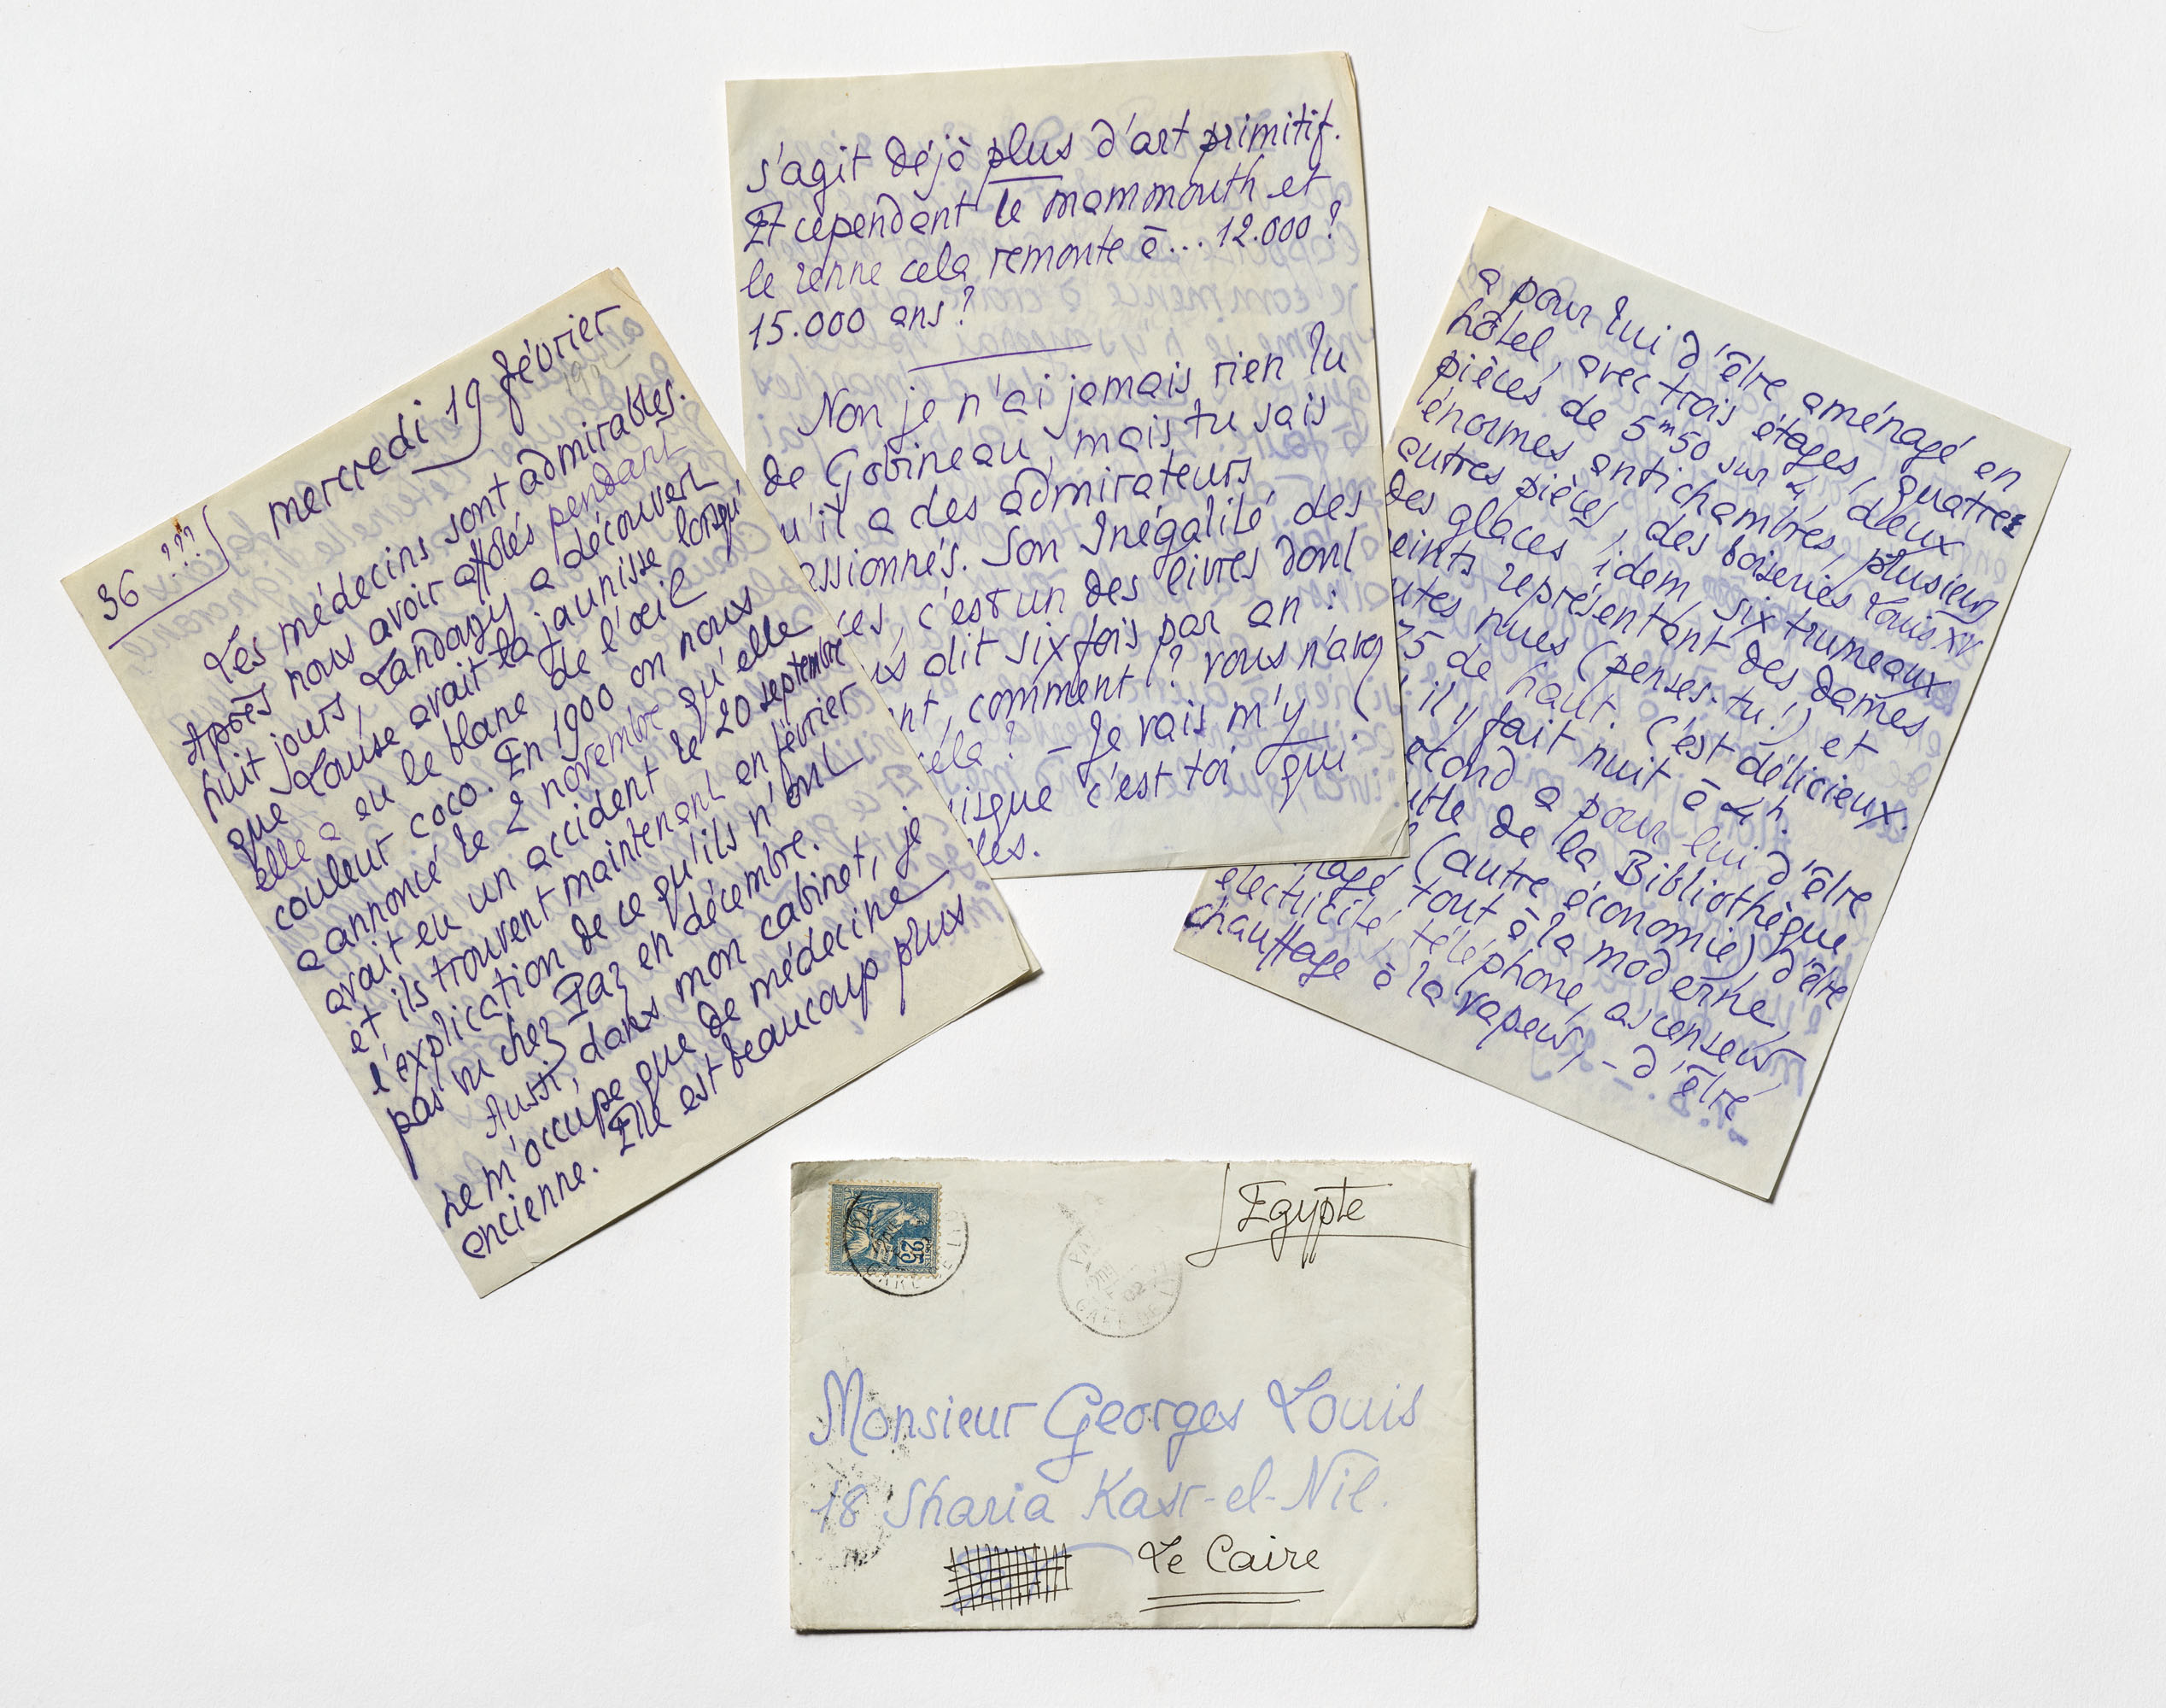 36 ???
mercredi 19 février
Les médecins sont admirables.
Après nous avoir affolés pendant
huit jours, Landowsy a découvert
que Louise avait la jaunisse lorsqu'
elle a eu le blanc de l'œil
couleur coco. En 1900 on nous
a annoncé le 2 novembre qu'elle
avait eu un accident le 20 septembre
et ils trouvent maintenant en février
l'explication de ce qu'ils n'ont
pas vu chez Paz en décembre.
Aussi, dans mon cabinet, je
ne m'occupe que de médecine
ancienne. Elle est beaucoup plus
s'agit déjà plus d'art primitif.
Et cependant le mammouth et
le renne cela remonte à... 12.000?
15.000 ans?
Non je n'ai jamais rien lu
de Gobineau, mais tu sais
u'il a des admirateurs
ssionnés. Son Inégalité des
ces, c'est un des livres dont
us dit six fois par an :
nt, comment? vous n'avez
cela? – Je vais m'y
isque c'est toi qui
les.
a pour lui d'être aménagé en
hôtel, avec trois étages, quatre
pièces de 5m50 sur 4, deux
énormes antichambres, plusieurs
autres pièces, des boiseries Louis XV
des glaces idem, six trumeaux
eints représentant des dames
utes nues (penses-tu!) et
75 de haut. C'est délicieux.
il y fait nuit à 4h.
econd a pour lui d'être
de la Bibliothèque
(autre économie), d'être
tout à la moderne,
électricité, téléphone, ascenseur,
chauffage à la vapeur, – d'être
Egypte
25
02
Monsieur Georges Louis
18 Sharia Kasr-el-Nil.
Le Caire